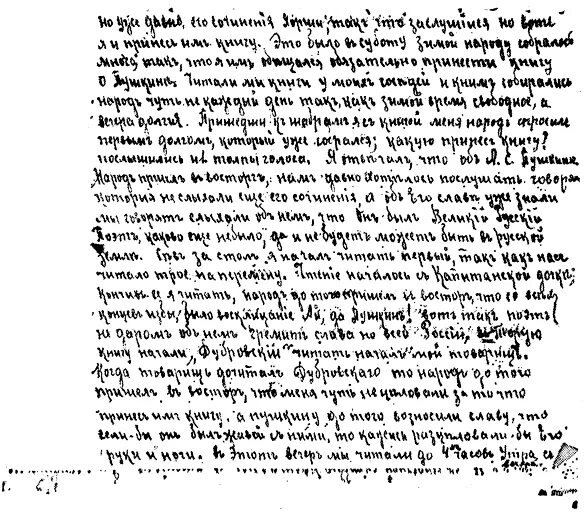 но уже давно, его сочинения хорши, так что заслушiися но вотъ
я и принесъ имъ книгу. Это было в суботу зимой народу собралось
много, такъ, что я имъ обещался обязательно принести книгу
о Пушкинѣ. Читали мы книги у моихъ соседей и книмъ собирались
народъ чуть не каждый день такъ, какъ зимой время свободное, а
вечера долгiя. Пришедши къ нимъ я съ книгой меня народъ спросилъ
первымъ долгомъ, который уже собрался; какую принесъ книгу?
послышились изъ толпы голоса. Я отвечалъ, что объ А. С. Пушкинѣ
Народъ пришелъ въ восторгъ, намъ давно хотѣлось послушать говоря
которiя не слыхали еще его сочиненiй, а объ его славѣ уже знали
мы говорятъ слыхали объ немъ, что онъ былъ Великiй Русскiй
Поэтъ, каково еще небыло, да и не будетъ можетъ быть в русской
землѣ. Сѣвъ за столъ я началъ читать первый, такъ какъ насъ
читало трое на переменну. Чтенiе началось съ Капитанской дочки,
кончивъ ее я читать, народъ до того пришелъ в восторъ, что со всехъ
концевъ избы было восклицанiе Ай, да Пушкинъ! вотъ такъ поэтъ
не даромъ объ немъ гремитъ слава по всей Россiи, вторую
книгу начали, „Дубровскiй" читать началъ мой товарищъ.
Когда товарищъ дочиталъ Дубровскаго то народъ до того
пришелъ въ восторгъ, что меня чуть не цаловали за то что
принесъ имъ книгу а пушкину до того возносили славу, что
если-бы онъ былъ живой съ ними, то кажись разцѣловали-бы его
руки и ноги. в Этотъ вечеръ мы читали до 4 часовъ утра, съ